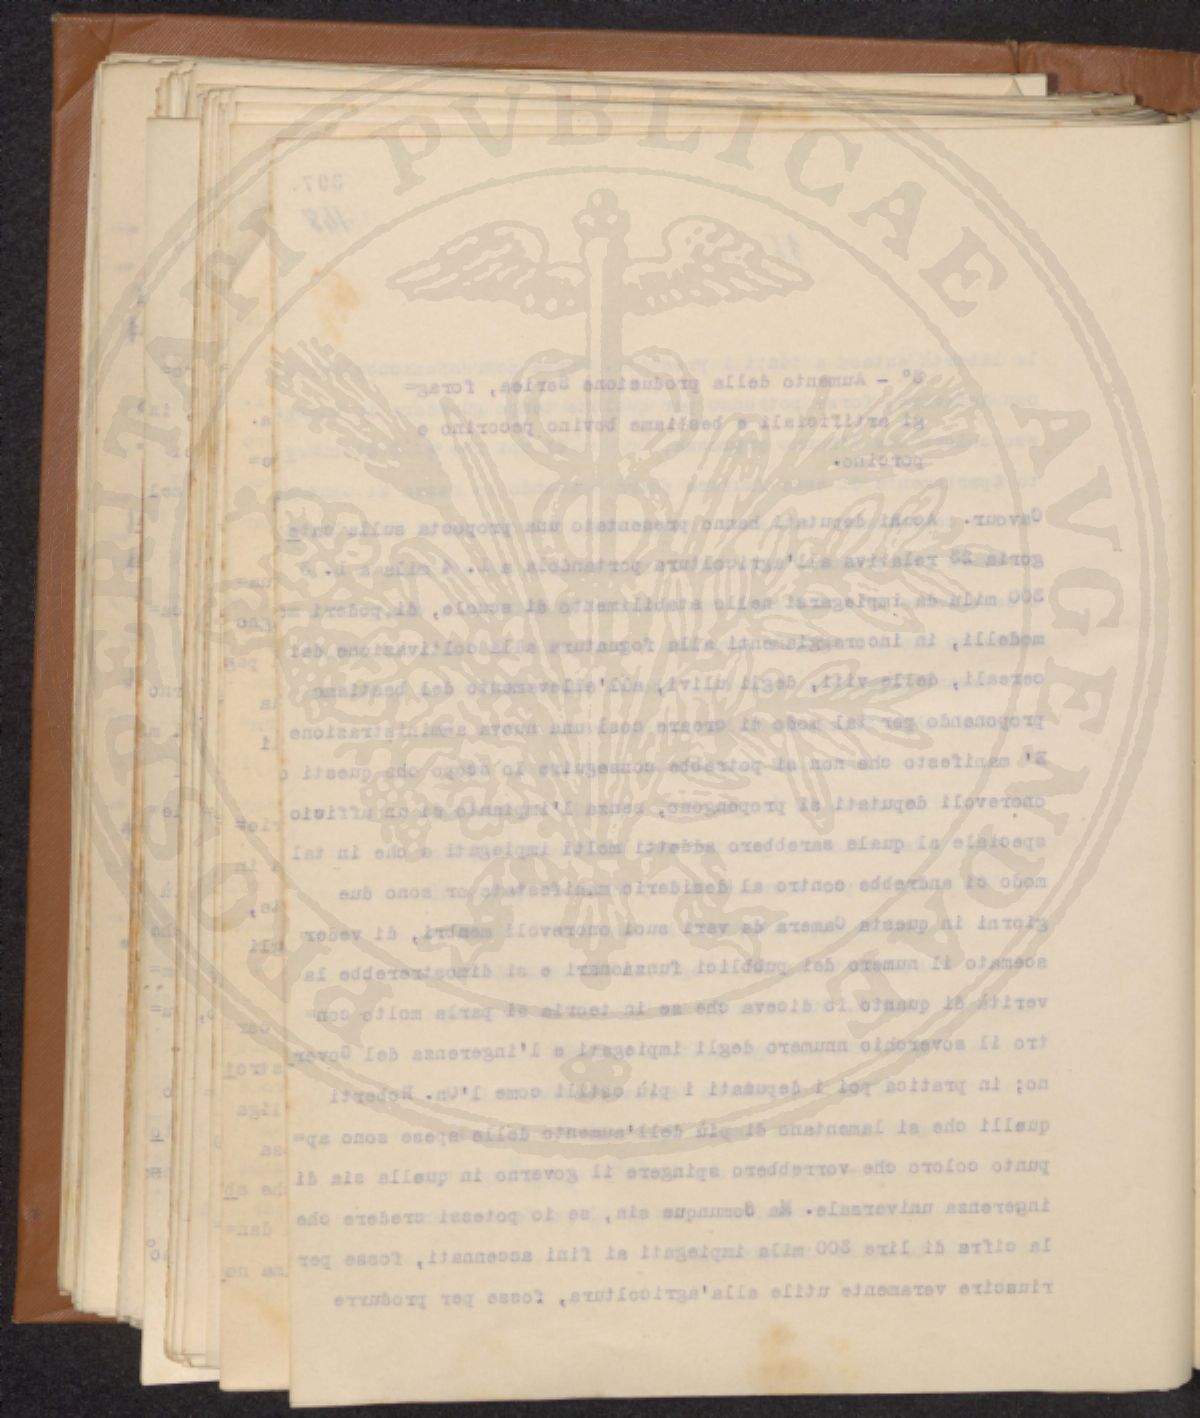 397.
148
3° - Aumento della produzione Serica, forag=
gi artificiali e bestiame bovino pecorino e
porcino.
Cavour. Aconi deputati hanno presentato una proposta sulla cate
goria 28 relativa all'agricoltura portandola a L. 4 mila a L.
300 mila da impiegarsi nello stabilimento di scuole, di poderi
modelli, in incoraggiamenti alla fognatura alla coltivazione dei
cereali, delle viti, degli ulivi, all'allevamento del bestiame
proponendo per tal modo di creare così una nuova amministrazione
E' manifesto che non si potrebbe conseguire lo scopo che questi
onorevoli deputati si propongono, senza l'impianto di un ufficio
speciale al quale sarebbero addetti molti impiegati e che in tal
modo ci andrebbe contro al desiderio manifestato or sono due
giorni in questa Camera da vari suoi onorevoli membri, di veder
scemato il numero dei pubblici funzionari e si dimostrerebbe la
verità di quanto io diceva che se in teoria si parla molto con=
tro il soverchio nnumero degli impiegati e l'ingerenza del Gover
no; in pratica poi i deputati i più ostili come l'On. Roberti
quelli che si lamentano di più dell'aumento delle spese sono ap=
punto coloro che vorrebbero spingere il governo in quella sia di
ingerenza universale. Ma comunque sia, se io potessi credere che
la cifra di lire 300 mila impiegati ai fini accennati, fosse per
riuscire veramente utile alla'agricoltura, fosse per produrre
PROSPERITATI PVBLICAE AVGENDAE